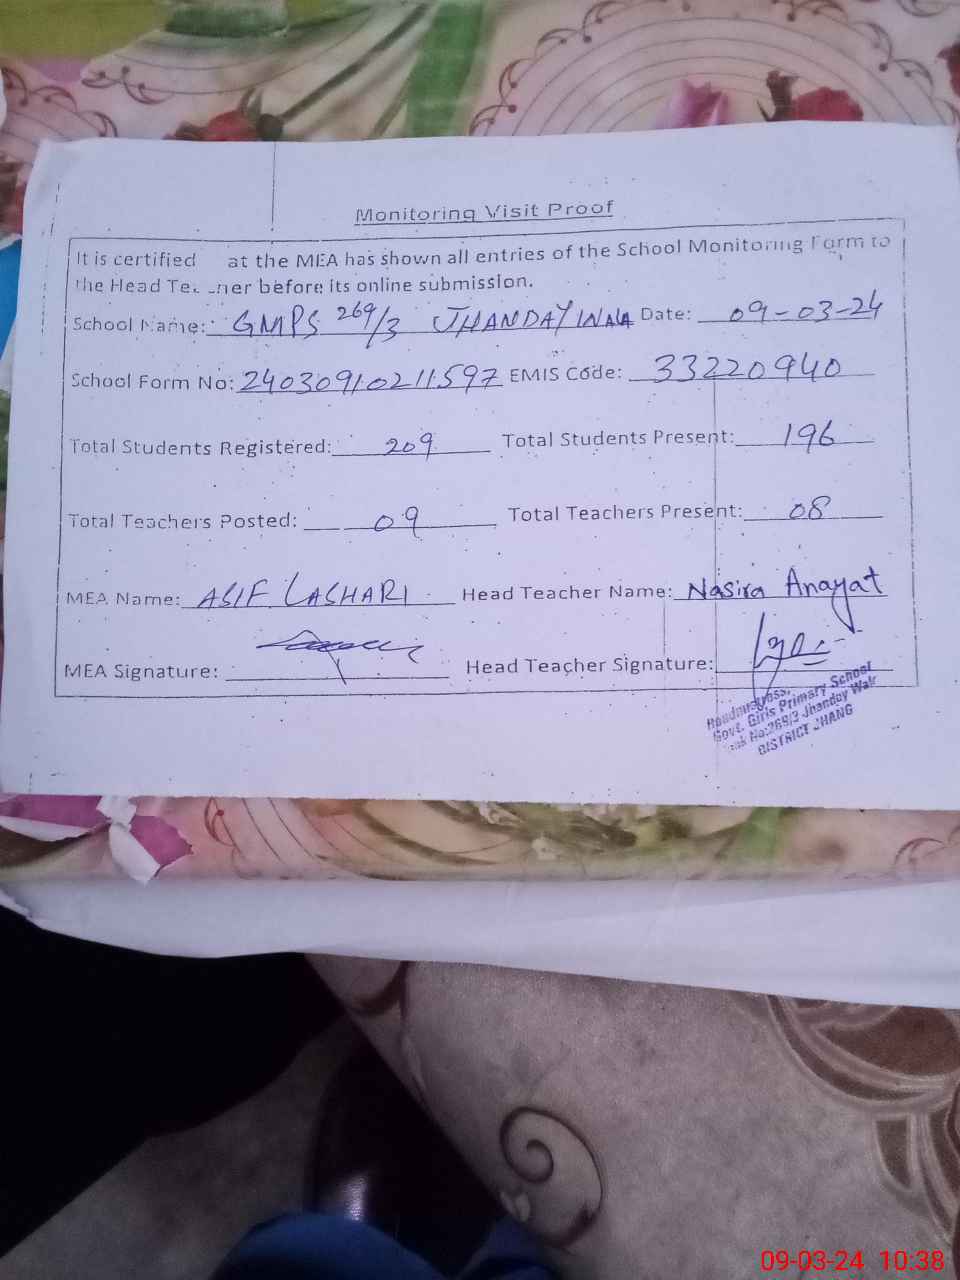 Monitoring Visit Proof
It is certified at the MEA has shown all entries of the School Monitoring Form to
the Head Te. .ner before its online submission.
School Name: GMPS 269/3 JHANDAY WALA Date: 09-03-24
School Form No: 24030910211597 EMIS Code: 33220940
Total Students Registered: 209 Total Students Present: 196
Total Teachers Posted: 09 Total Teachers Present: 08
MEA Name: ASIF LASHARI Head Teacher Name: Nasira Anayat
MEA Signature: Head Teacher Signature:
Headmistress,
Govt. Girls Primary School
No:269/3 Jhanday Wala
DISTRICT JHANG
09-03-24 10:38